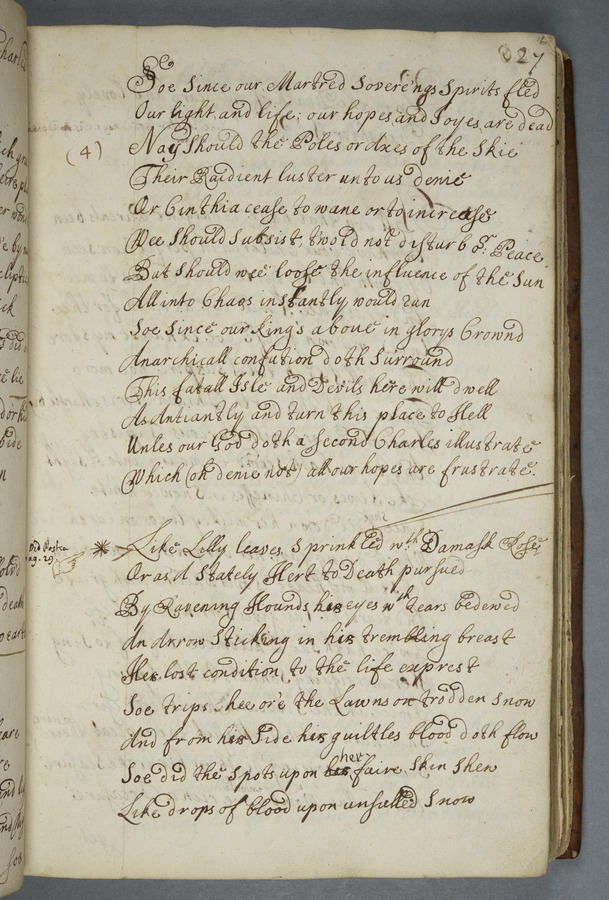 27
Soe Since our Martred Soverengs Spirits fled
Our light, and life, our hopes and Joyes are dead
(4)
Nay Should the Poles or Axes of the Skie
Their Raidient luster unto us denie
Or Cinthia cease to wane or to increase
Wee Should Subsist, twold not disturb or Peace
But should wee loose the influence of the Sun
All into Chaos instantly would run
Soe Since our King's above in glorys Crownd
Anarchicall confution doth Surround
This fatall Isle and Devils here will dwell
As Antiantly and turn this place to Hell
Unles our God doth a Second Charles illustrate
Which (oh denie not) all our hopes are frustrate.
Vid Postea
pag. 29
* Like Lilly leaves Sprinkled wth Damask Roses
Or as a Stately Hert to Death pursued
By Ravening Hounds his eyes wth tears bedewed
An Arrow Sticking in his trembling breast
His lost condition to the life exprest
Soe trips hee ore the Lawns on trodden Snow
And from his Side his guiltles blood doth flow
Soe did the Spots upon his her faire Skin Shew
Like drops of blood upon unsulled Snow